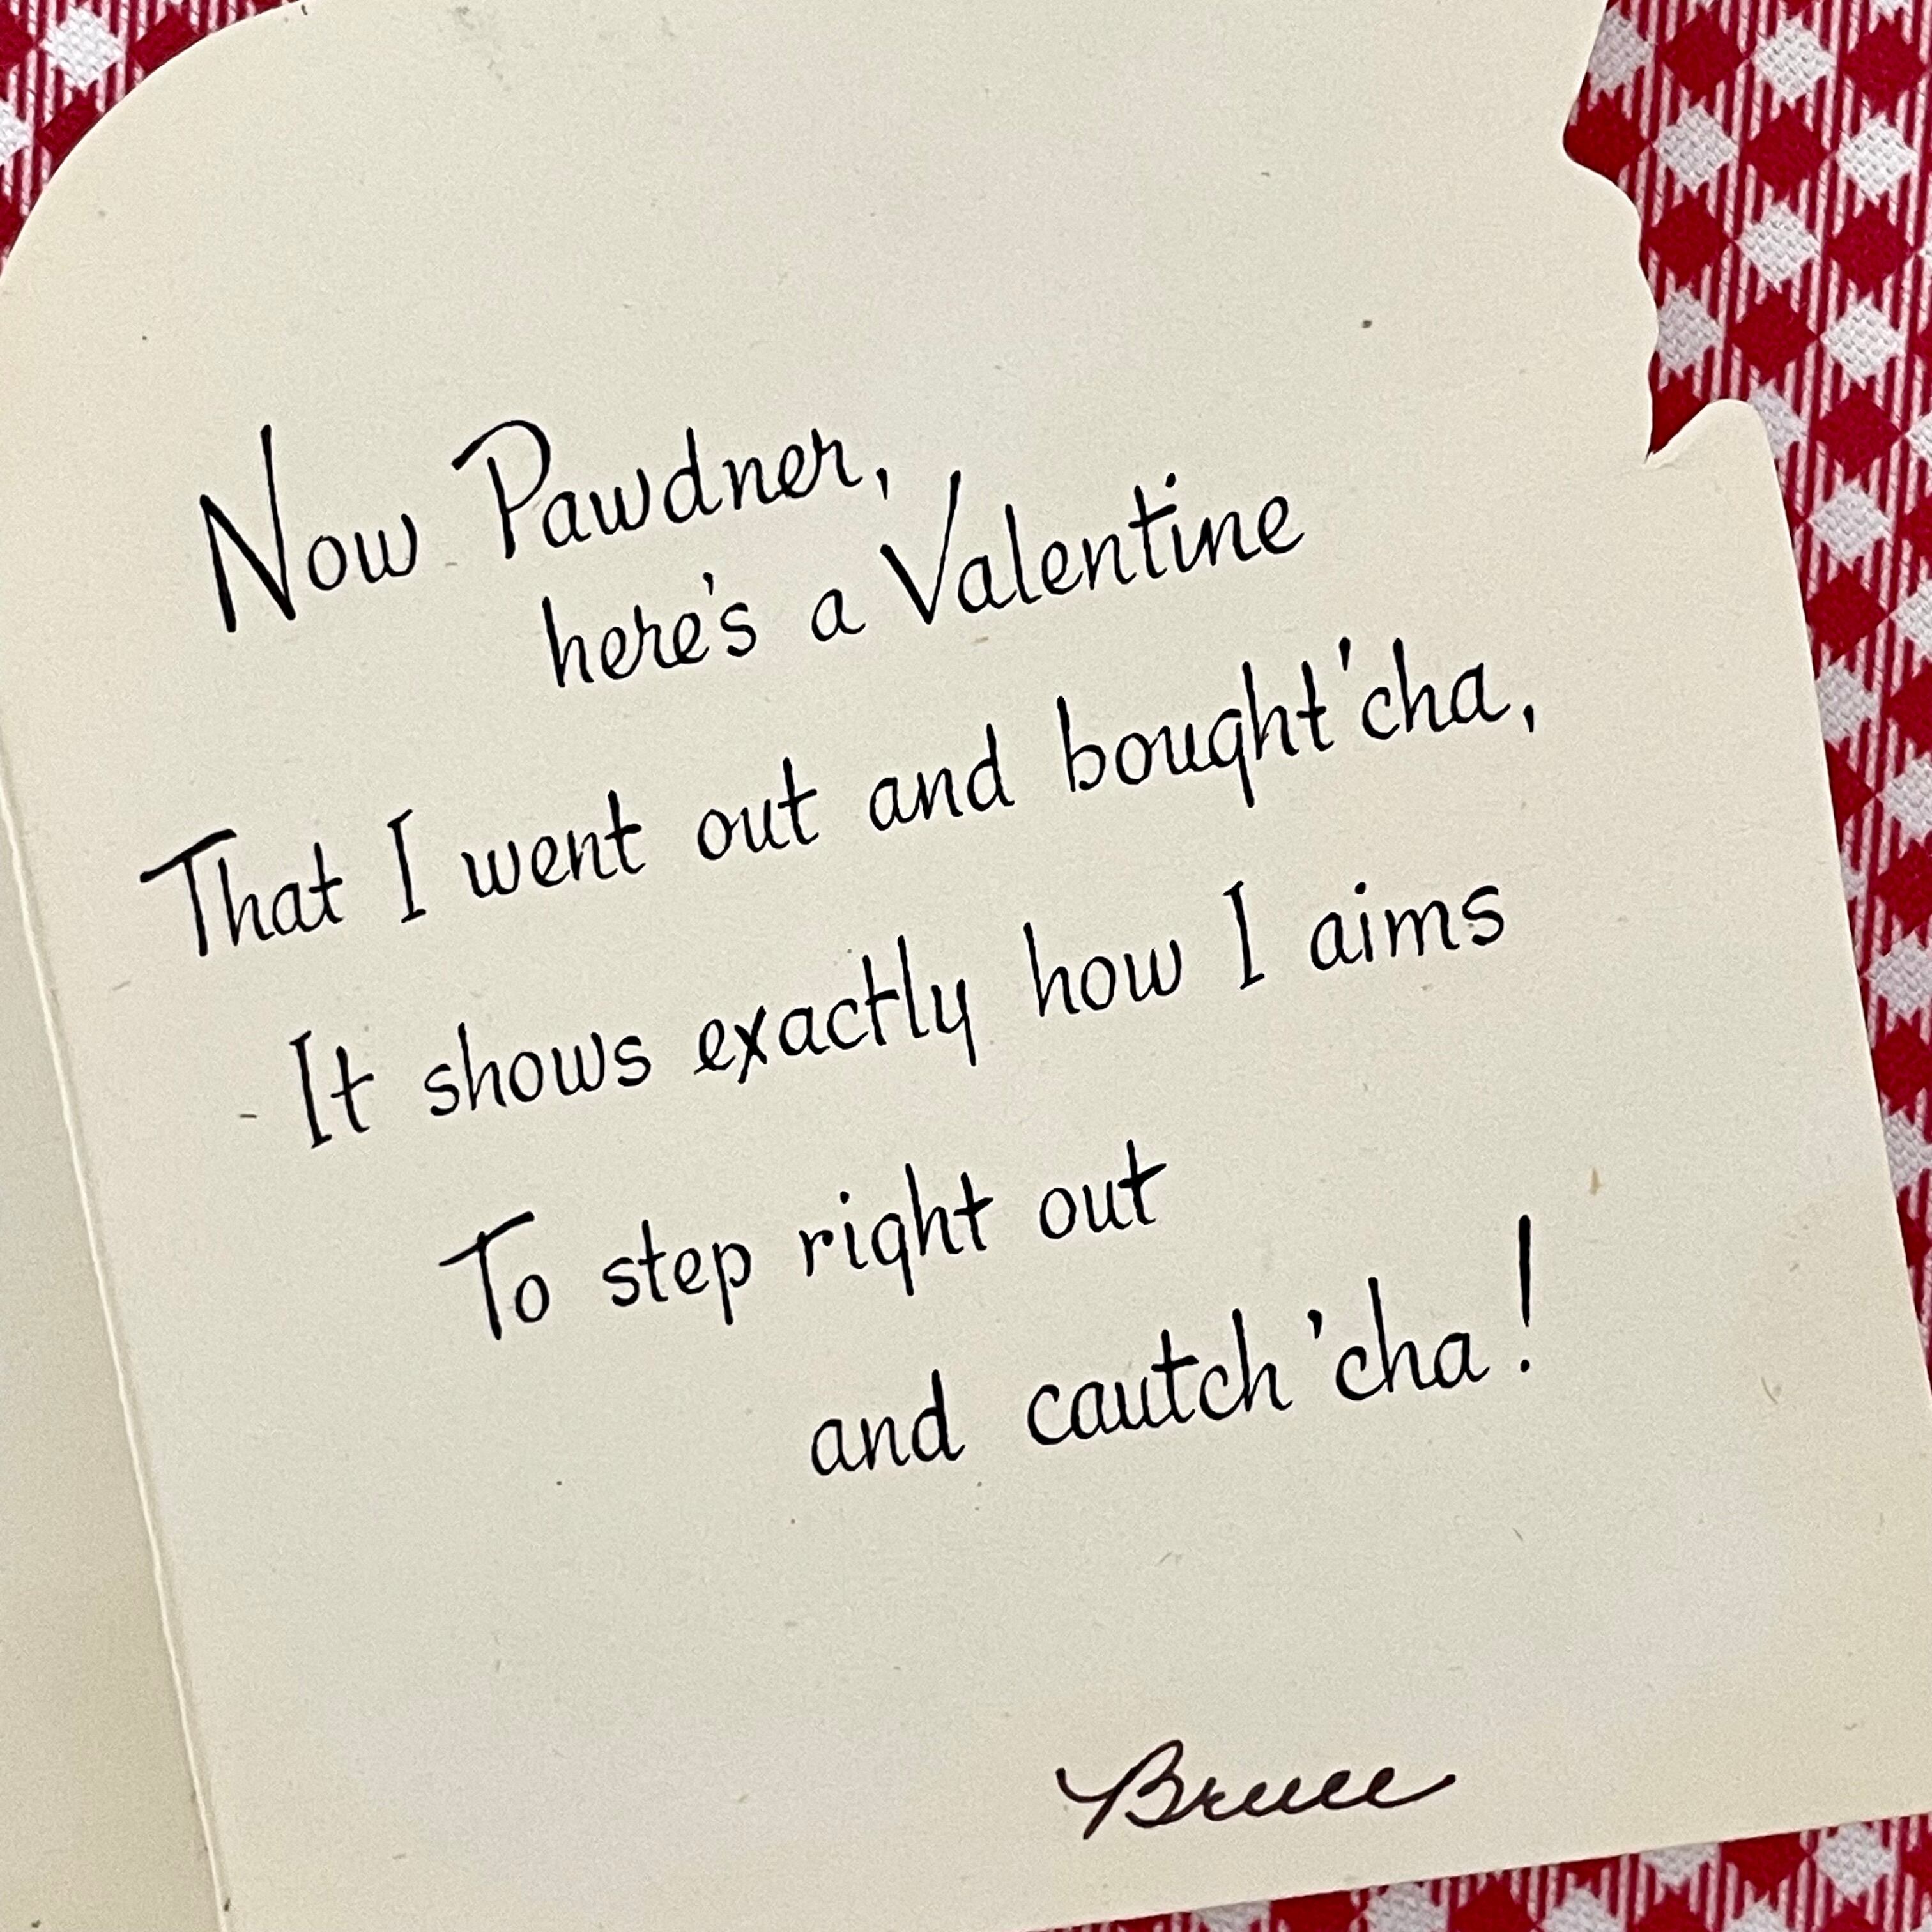 Now Pawdner,
here's a Valentine
That I went out and bought'cha,
It shows exactly how I aims
To step right out
and cautch'cha!
Bruce